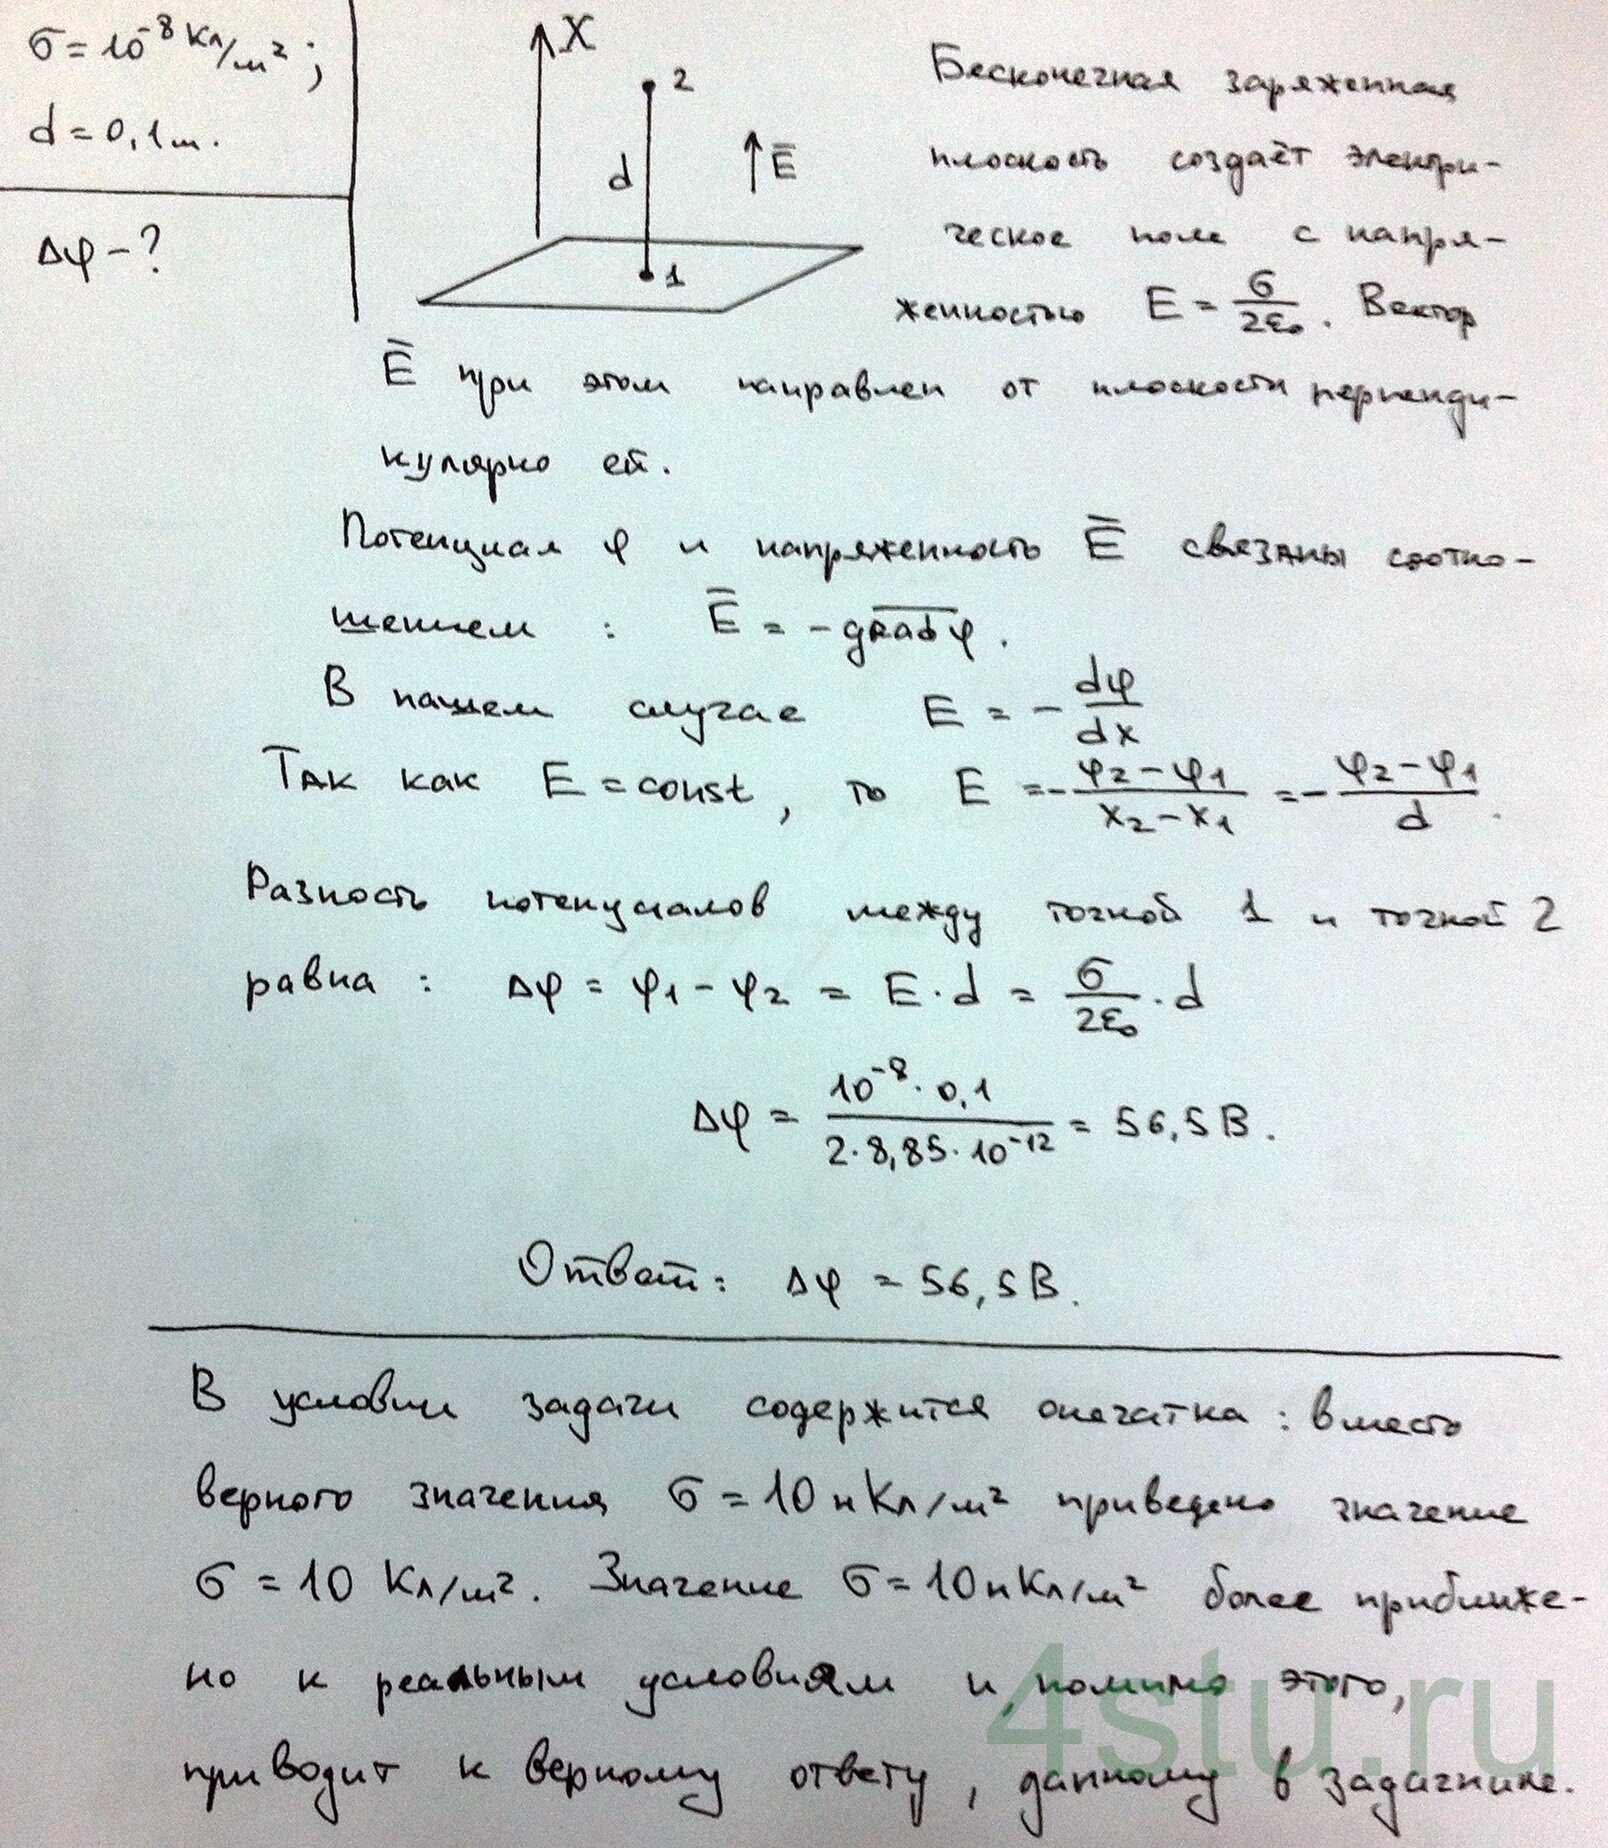 σ = 10⁻⁸ Кл/м²;
d = 0,1 м.
Δφ - ?
X
2
d
Ē
1
Бесконечная заряженная
плоскость создаёт электри-
ческое поле с напря-
женностью E = σ/2ε₀. Вектор
Ē при этом направлен от плоскости перпенди-
кулярно ей.
Потенциал φ и напряженность Ē связаны соотно-
шением : Ē = - grad φ.
В нашем случае E = - dφ/dx
Так как E = const, то E = - (φ₂ - φ₁)/(x₂ - x₁) = - (φ₂ - φ₁)/d.
Разность потенциалов между точкой 1 и точкой 2
равна : Δφ = φ₁ - φ₂ = E · d = σ/2ε₀ · d
Δφ = (10⁻⁸ · 0,1)/(2 · 8,85 · 10⁻¹²) = 56,5 В.
Ответ: Δφ = 56,5 В.
В условии задачи содержится опечатка : вместо
верного значения σ = 10 нКл/м² приведено значение
σ = 10 Кл/м². Значение σ = 10 нКл/м² более приближе-
но к реальным условиям и, помимо этого,
приводит к верному ответу, данному в задачнике.
4stu.ru